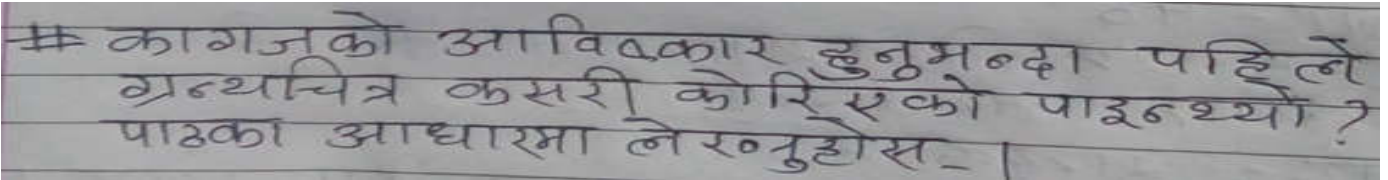 # कागजको आविष्कार हुनुभन्दा पहिले
ग्रन्थचित्र कसरी कोरिएको पाइन्थ्यो ?
पाठका आधारमा लेख्नुहोस_ |